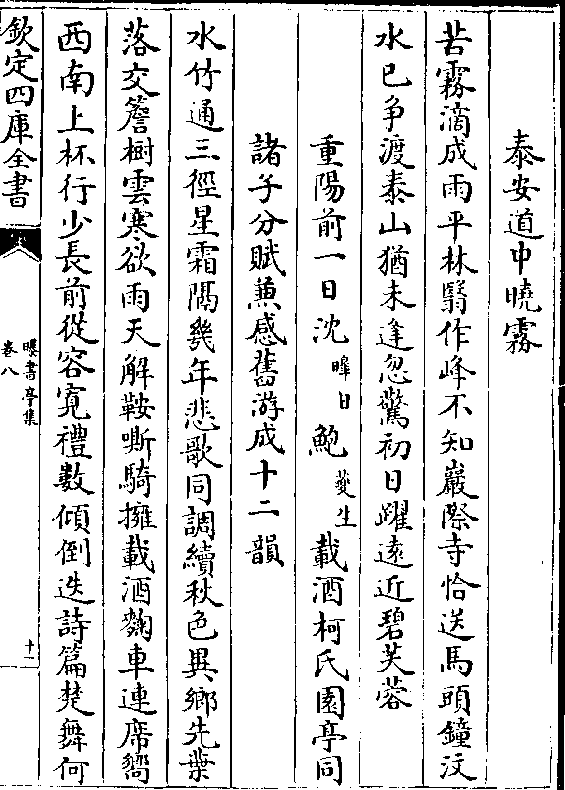 泰安道中曉霧
苦霧滴成雨平林翳作峰不知巖際寺恰送馬頭鐘汶
水已争渡泰山猶未逢忽驚初日躍遠近碧芙蓉
重陽前一日沈皥日鮑夔生載酒柯氏園亭同
諸子分賦兼感舊游成十二韻
水竹通三徑星霜隔幾年悲歌同調續秋色異鄉先葉
落交簷樹雲寒欲雨天解鞍嘶騎擁載酒麴車連席嚮
西南上杯行少長前從容寛禮數傾倒迭詩篇楚舞何
欽定四庫全書
曝書亭集
卷八
十一